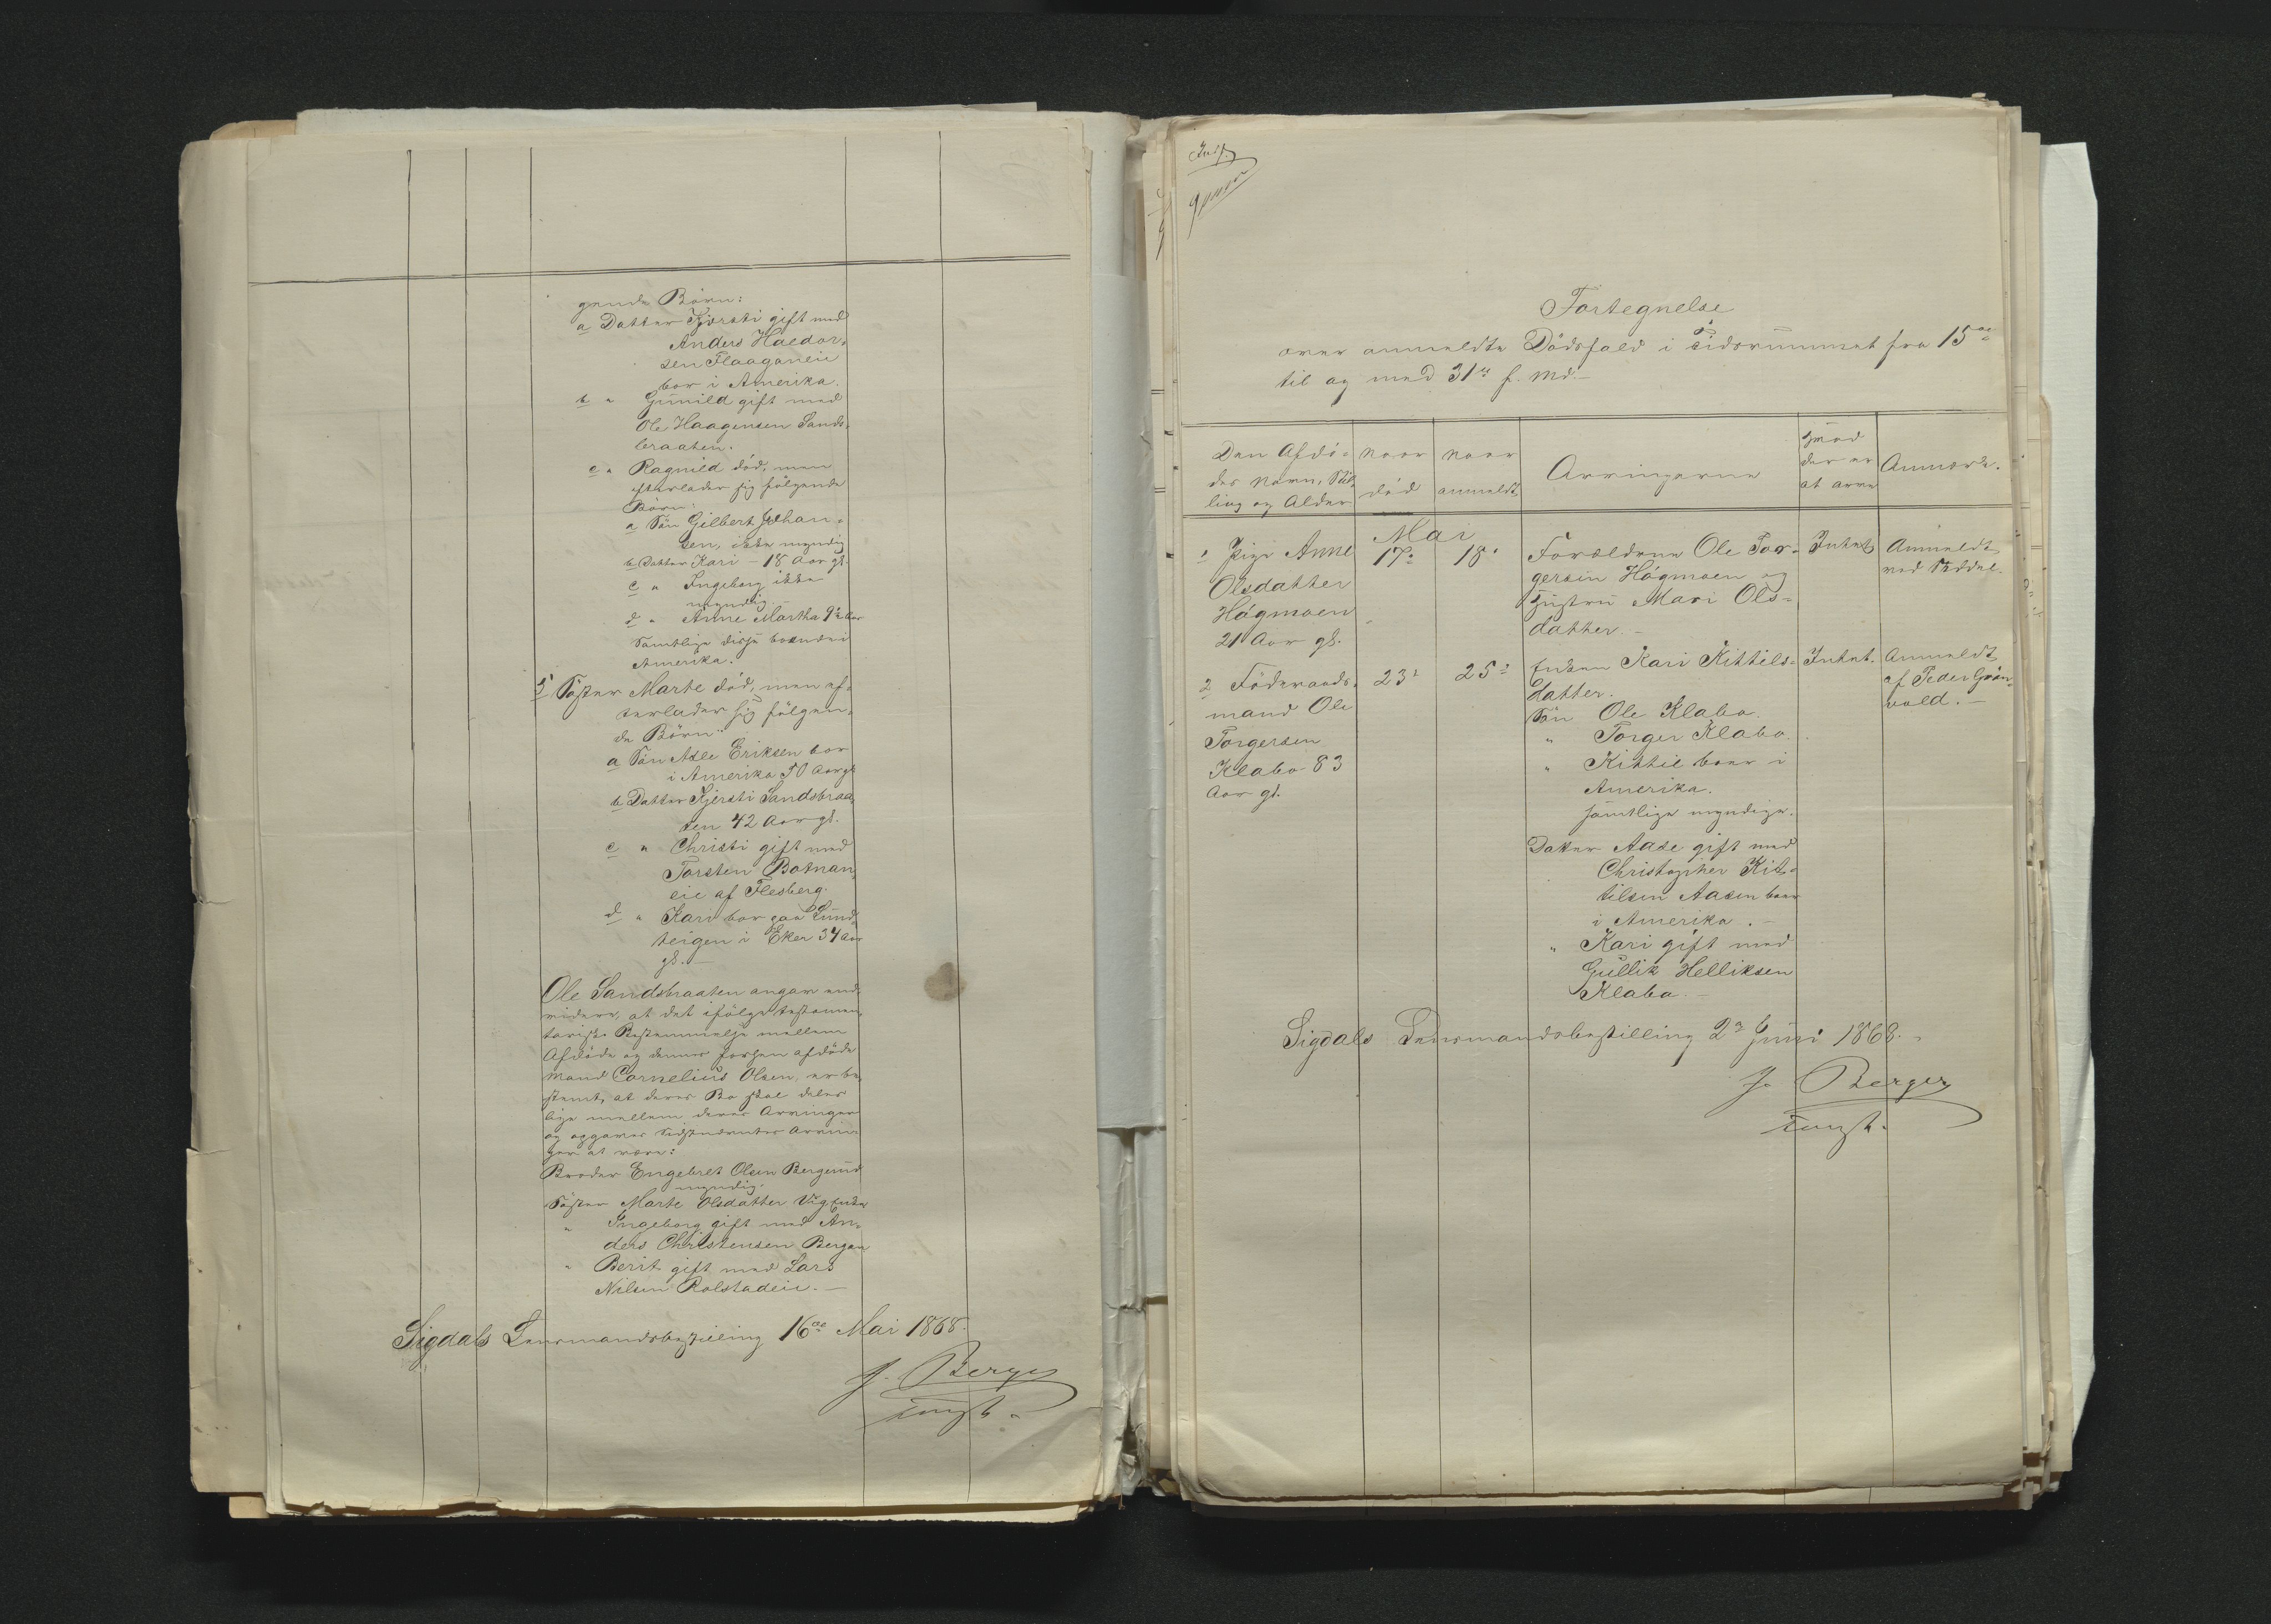 gende Börn:
a Datter Kjersti gift med
Anders Haldor-
sen Flaaganeie
bor i Amerika.
b " Gunild gift med
Ole Haagensen Sands-
braaten.
c " Ragnild död, men
efterlader sig fölgende
Börn:
a Sön Gilbert Johan-
sen, ikke myndig
b Datter Kari - 18 Aar gl.
c " Ingeborg ikke
myndig.
d " Anne Martha 9½ Aar
Samtlige disse boende i
Amerika.
5 Söster Marte död, men ef-
terlader sig fölgen-
de Börn:
a Sön Asle Eriksen bor
i Amerika 50 Aar gl.
b Datter Kjersti Sandsbraa-
ten 42 Aar gl.
c " Christi gift med
Torsten Botnan-
eie af Flesberg.
d " Kari bor paa Lund-
teigen i Eker 34 Aar
gl. -
Ole Sandsbraaten angav end-
videre, at det ifölge testamen-
tarisk Bestemmelse mellem
Afdöde og dennes forhen afdöde
Mand Cornelius Olsen, er be-
stemt, at deres Bo skal deles
lige mellem deres Arvinger
og opgaves Sidstnævntes Arvin-
ger at være:
Broder Engebret Olsen Bergund
myndig.
Söster Marte Olsdatter Vig Enke
" Ingeborg gift med An-
ders Christensen Bergan
" Berit gift med Lars
Nilsen Rolstadeie. -
Sigdals Lensmandsbestilling 16de Mai 1868.
J. Berger
Const.
Indf.
Fortegnelse
over anmeldte Dödsfald i Tidsrummet fra 15de
til og med 31te f. Md. -
Den Afdö-
des Navn, Stil-
ling og Alder
Naar
död
Naar
anmeldt
Arvingerne
Hvad
der er
at arve
Anmærk.
Mai
1 Pige Anne
Olsdatter
Högmoen
21 Aar gl.
17de
18de
Forældrene Ole Tor-
gersen Högmoen og
Hustru Mari Ols-
datter. -
Intet
Anmeldt
ved Seddel.
2 Föderaads-
mand Ole
Torgersen
Klabo 83
Aar gl.
23de
25de
Enken Kari Kittils-
datter.
Sön Ole Klabo.
" Torger Klabo.
" Kittil boer i
Amerika.
samtlige myndige.
Datter Aase gift med
Christopher Kit-
tilsen Aasen boer
i Amerika. -
" Kari gift med
Gullik Helliksen
Klabo. -
Intet.
Anmeldt
af Peder Grön-
vold. -
Sigdals Lensmandsbestilling 2den Juni 1868. -
J. Berger
Const.